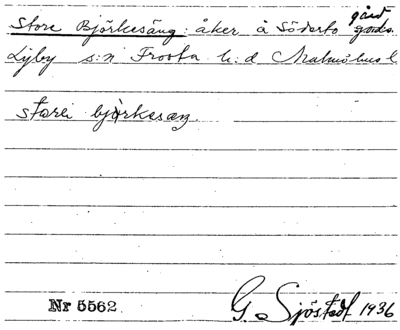 Store Björkesäng: åker å Söderto gård
Lyby s:n Frosta h:d Malmöhus l
storei björkesäng.
Nr 5562
G. Sjöstedt 1936